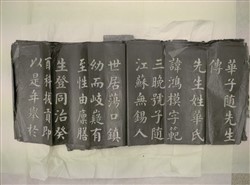 華子随先生
傳
先生姓華氏
諱鴻模字範
三晚號子随
江蘇無錫人
世居蕩口鎮
幼而岐嶷有
至性由廩膳
生登同治癸
酉科拔貢即
以是年舉於